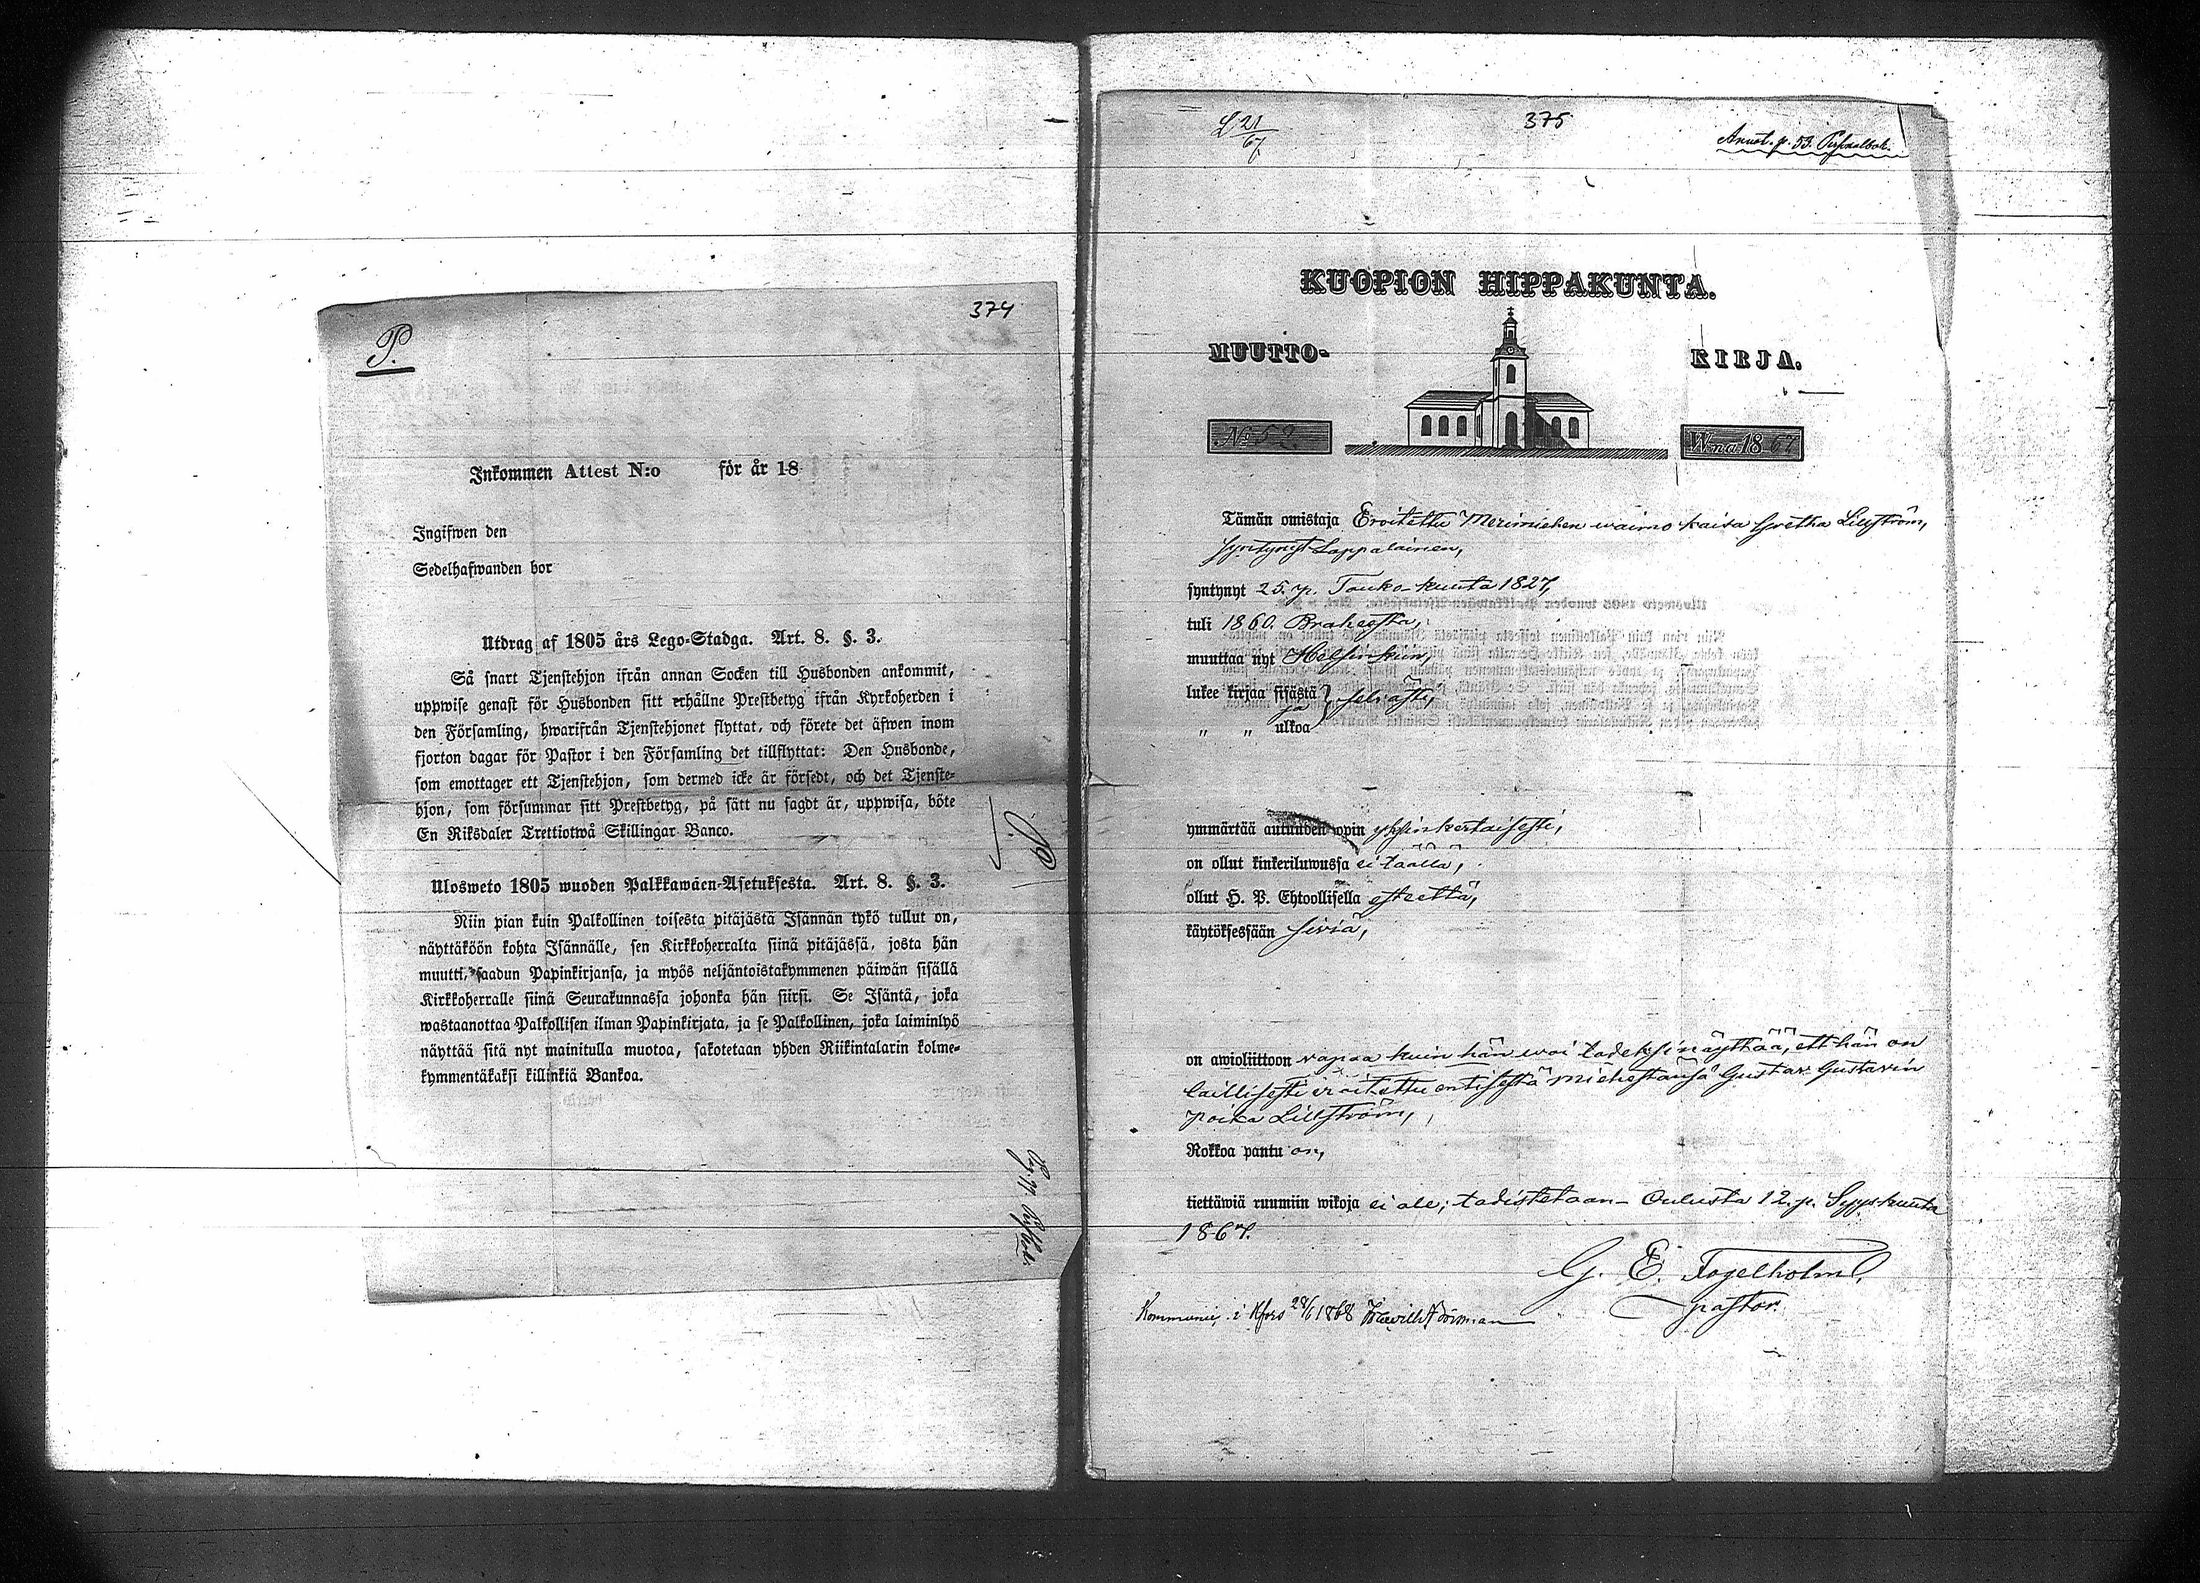 374
P.
Inkommen Attest N:o för år 18
Ingifwen den
Sedelhafwanden bor
Utdrag af 1805 års Lego-Stadga. Art. 8. §. 3.
Så snart Tjenstehjon ifrån annan Socken till Husbonden ankommit,
uppwise genast för Husbonden sitt erhållne Prestbetyg ifrån Kyrkoherden i
den Församling, hwarifrån Tjenstehjonet flyttat, och förete det äfwen inom
fjorton dagar för Pastor i den Församling det tillflyttat: Den Husbonde,
som emottager ett Tjenstehjon, som dermed icke är försedt, och det Tjenste-
hjon, som försummar sitt Prestbetyg, på sätt nu sagdt är, uppwisa, böte
En Riksdaler Trettiotwå Skillingar Banco.
Ulosweto 1805 wuoden Palkkawäen-Asetuksesta. Art. 8. §. 3.
Niin pian kuin Palkollinen toisesta pitäjästä Isännän tykö tullut on,
näyttäköön kohta Isännälle, sen Kirkkoherralta siinä pitäjässä, josta hän
muutti, saadun Papinkirjansa, ja myös neljäntoistakymmenen päiwän sisällä
Kirkkoherralle siinä Seurakunnassa johonka hän siirsi. Se Isäntä, joka
wastaanottaa Palkollisen ilman Papinkirjata, ja se Palkollinen, joka laiminlyö
näyttää sitä nyt mainitulla muotoa, sakotetaan yhden Riikintalarin kolme-
kymmentäkaksi killinkiä Bankoa.
L 21/67
375
Annot. p. 53.
KUOPION HIPPAKUNTA.
MUUTTO- KIRJA.
No 52. W:na 1867
Tämän omistaja Eroitettu Merimiehen waimo Kaisa Gretha Lillström,
syntynyt Lappalainen,
syntynyt 25. p. Touko-kuuta 1827,
tuli 1860. Brahesta,
muuttaa nyt Helsinkiin,
lukee kirjaa sisästä
ja } selvästi,
„ „ ulkoa
ymmärtää autuuden opin yksinkertaisesti,
on ollut kinkeriluwussa ei täällä,
ollut H. P. Ehtoollisella esteettä,
käytöksessään siviä,
on awioliittoon vapaa kuin hän woi todeksi näyttää, ett hän on
laillisesti eroitettu entisestä miehestänsä Gustav Gustavin
poika Lillström,
Rokkoa pantu on,
tiettäwiä ruumiin wikoja ei ole; todistetaan Oulusta 12. p. Syyskuuta
1867.
G. E. Fogelholm,
pastor.
Kommunic. i Hfors 28/6 1868